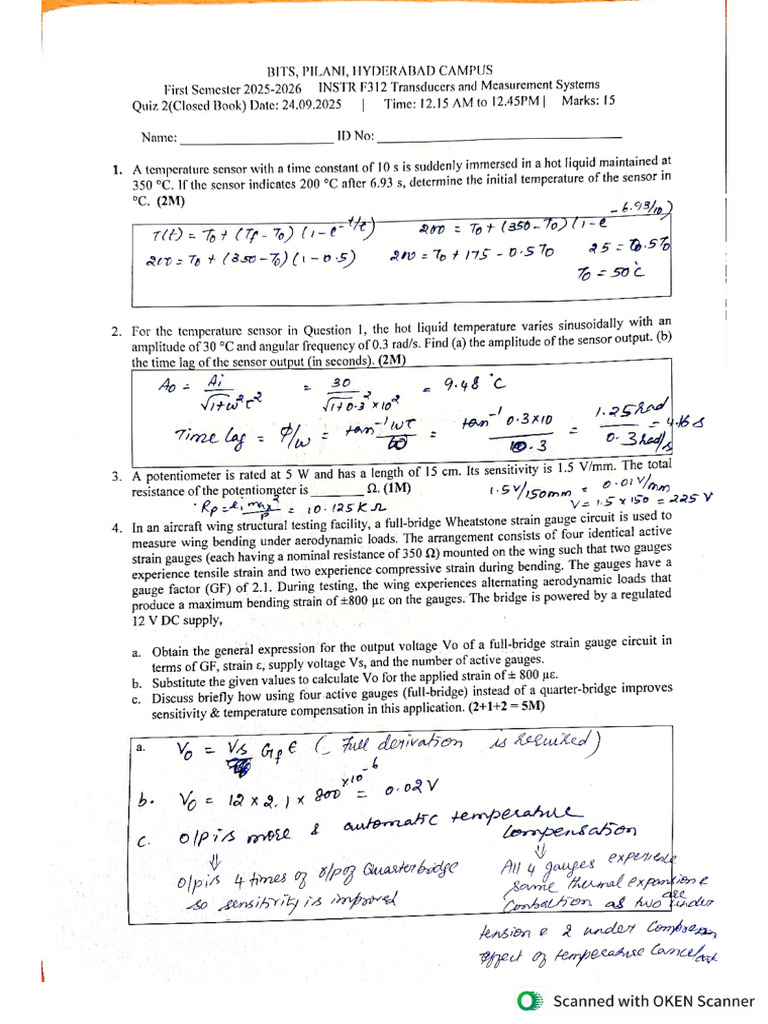 BITS, PILANI, HYDERABAD CAMPUS
First Semester 2025-2026 INSTR F312 Transducers and Measurement Systems
Quiz 2(Closed Book) Date: 24.09.2025 | Time: 12.15 AM to 12.45PM | Marks: 15
Name: ____________________ ID No: ____________________
1. A temperature sensor with a time constant of 10 s is suddenly immersed in a hot liquid maintained at
350 °C. If the sensor indicates 200 °C after 6.93 s, determine the initial temperature of the sensor in
°C. (2M)
T(t) = T0 + (Tf - T0) (1 - e^-t/τ) 200 = T0 + (350 - T0) (1 - e^-6.93/10)
200 = T0 + (350 - T0) (1 - 0.5) 200 = T0 + 175 - 0.5T0 25 = 0.5T0
T0 = 50°C
2. For the temperature sensor in Question 1, the hot liquid temperature varies sinusoidally with an
amplitude of 30 °C and angular frequency of 0.3 rad/s. Find (a) the amplitude of the sensor output. (b)
the time lag of the sensor output (in seconds). (2M)
A0 = Ai / √1+ω²τ² = 30 / √1+0.3²×10² = 9.48 °C
Time lag = Φ/ω = tan⁻¹ωτ / ω = tan⁻¹ 0.3×10 / 0.3 = 1.25 rad / 0.3 rad/s = 4.16 s
3. A potentiometer is rated at 5 W and has a length of 15 cm. Its sensitivity is 1.5 V/mm. The total
resistance of the potentiometer is _______ Ω. (1M) 1.5V/150mm = 0.01V/mm
= 10.125KΩ V = 1.5 × 150 = 225 V
4. In an aircraft wing structural testing facility, a full-bridge Wheatstone strain gauge circuit is used to
measure wing bending under aerodynamic loads. The arrangement consists of four identical active
strain gauges (each having a nominal resistance of 350 Ω) mounted on the wing such that two gauges
experience tensile strain and two experience compressive strain during bending. The gauges have a
gauge factor (GF) of 2.1. During testing, the wing experiences alternating aerodynamic loads that
produce a maximum bending strain of ±800 με on the gauges. The bridge is powered by a regulated
12 V DC supply,
a. Obtain the general expression for the output voltage Vo of a full-bridge strain gauge circuit in
terms of GF, strain ε, supply voltage Vs, and the number of active gauges.
b. Substitute the given values to calculate Vo for the applied strain of ± 800 με.
c. Discuss briefly how using four active gauges (full-bridge) instead of a quarter-bridge improves
sensitivity & temperature compensation in this application. (2+1+2 = 5M)
a. V0 = Vs Gf ε ( Full derivation is required)
b. V0 = 12 × 2.1 × 800 ×10^-6 = 0.02V
c. O/p is more & automatic temperature compensation
⇓ ⇓
O/p is 4 times of o/p of Quarterbridge All 4 gauges experience
so sensitivity is improved same thermal expansion &
contraction as two are under
tension & 2 under
effect of temperature
Scanned with OKEN Scanner